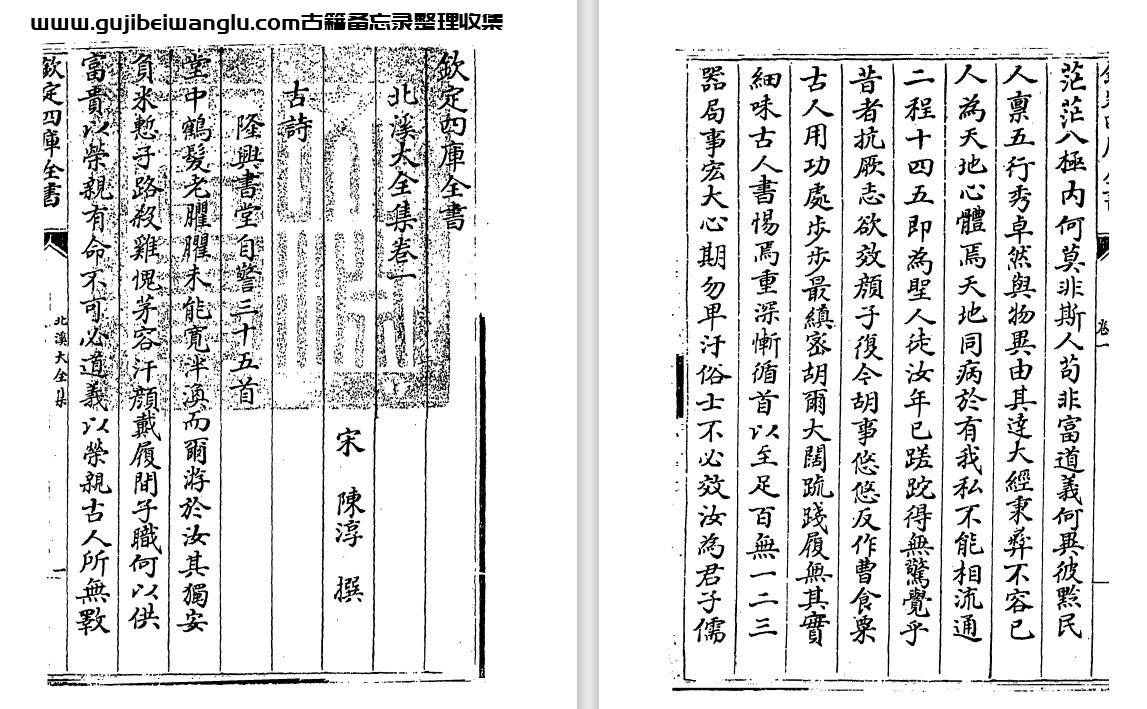 www.gujibeiwanglu.com古籍备忘录整理收集
欽定四庫全書
北溪大全集卷一
宋 陳淳 撰
古詩
隆興書堂自警三十五首
堂中鶴髮老臞臞未能寛泮渙而爾游於汝其獨安
負米慙子路殺雞愧茅容汗顔戴履間子職何以供
富貴以榮親有命不可必道義以榮親古人所無斁
欽定四庫全書
北溪大全集
一
卷一
茫茫八極内何莫非斯人苟非富道義何異彼黔民
人禀五行秀卓然與物異由其達大經秉彛不容已
人為天地心體焉天地同病於有我私不能相流通
二程十四五即為聖人徒汝年已蹉跎得無驚覺乎
昔者抗厥志欲效顔子復今胡事悠悠反作曹食粟
古人用功處步步最縝宻胡爾大闊疏踐履無其實
細味古人書惕焉重深慚循首以至足百無一二三
器局事宏大心期勿卑汙俗士不必效汝為君子儒